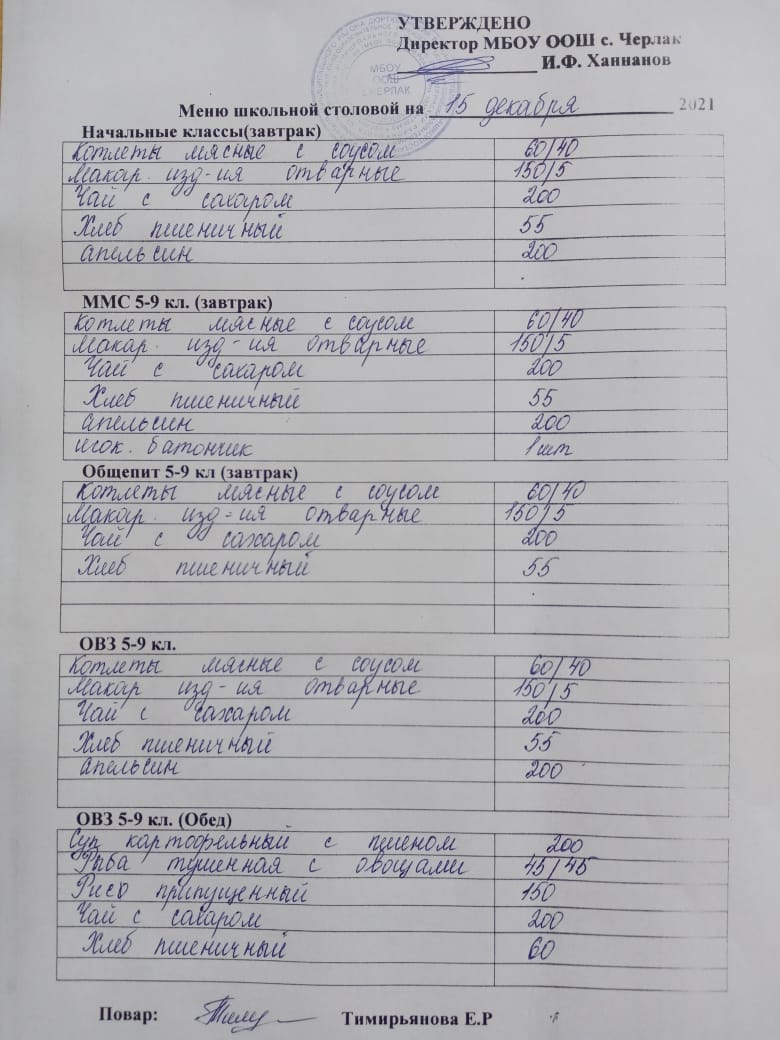 УТВЕРЖДЕНО
Директор МБОУ ООШ с. Черлак
И.Ф. Ханнанов
МБОУ
ООШ
С.ЧЕРЛАК
Меню школьной столовой на 15 декабря 2021
Начальные классы(завтрак)
Котлеты мясные с соусом 60/40
Макар. изд-ия отварные 150/5
Чай с сахаром 200
Хлеб пшеничный 55
апельсин 200
ММС 5-9 кл. (завтрак)
Котлеты мясные с соусом 60/40
Макар. изд-ия отварные 150/5
Чай с сахаром 200
Хлеб пшеничный 55
апельсин 200
шок. батончик 1 шт
Общепит 5-9 кл (завтрак)
Котлеты мясные с соусом 60/40
Макар. изд-ия отварные 150/5
Чай с сахаром 200
Хлеб пшеничный 55
ОВЗ 5-9 кл.
Котлеты мясные с соусом 60/40
Макар изд-ия отварные 150/5
Чай с сахаром 200
Хлеб пшеничный 55
апельсин 200
ОВЗ 5-9 кл. (Обед)
Суп картофельный с пшеном 200
Рыба тушенная с овощами 45/45
Рис припущенный 150
Чай с сахаром 200
Хлеб пшеничный 60
Повар: Тимирьянова Е.Р